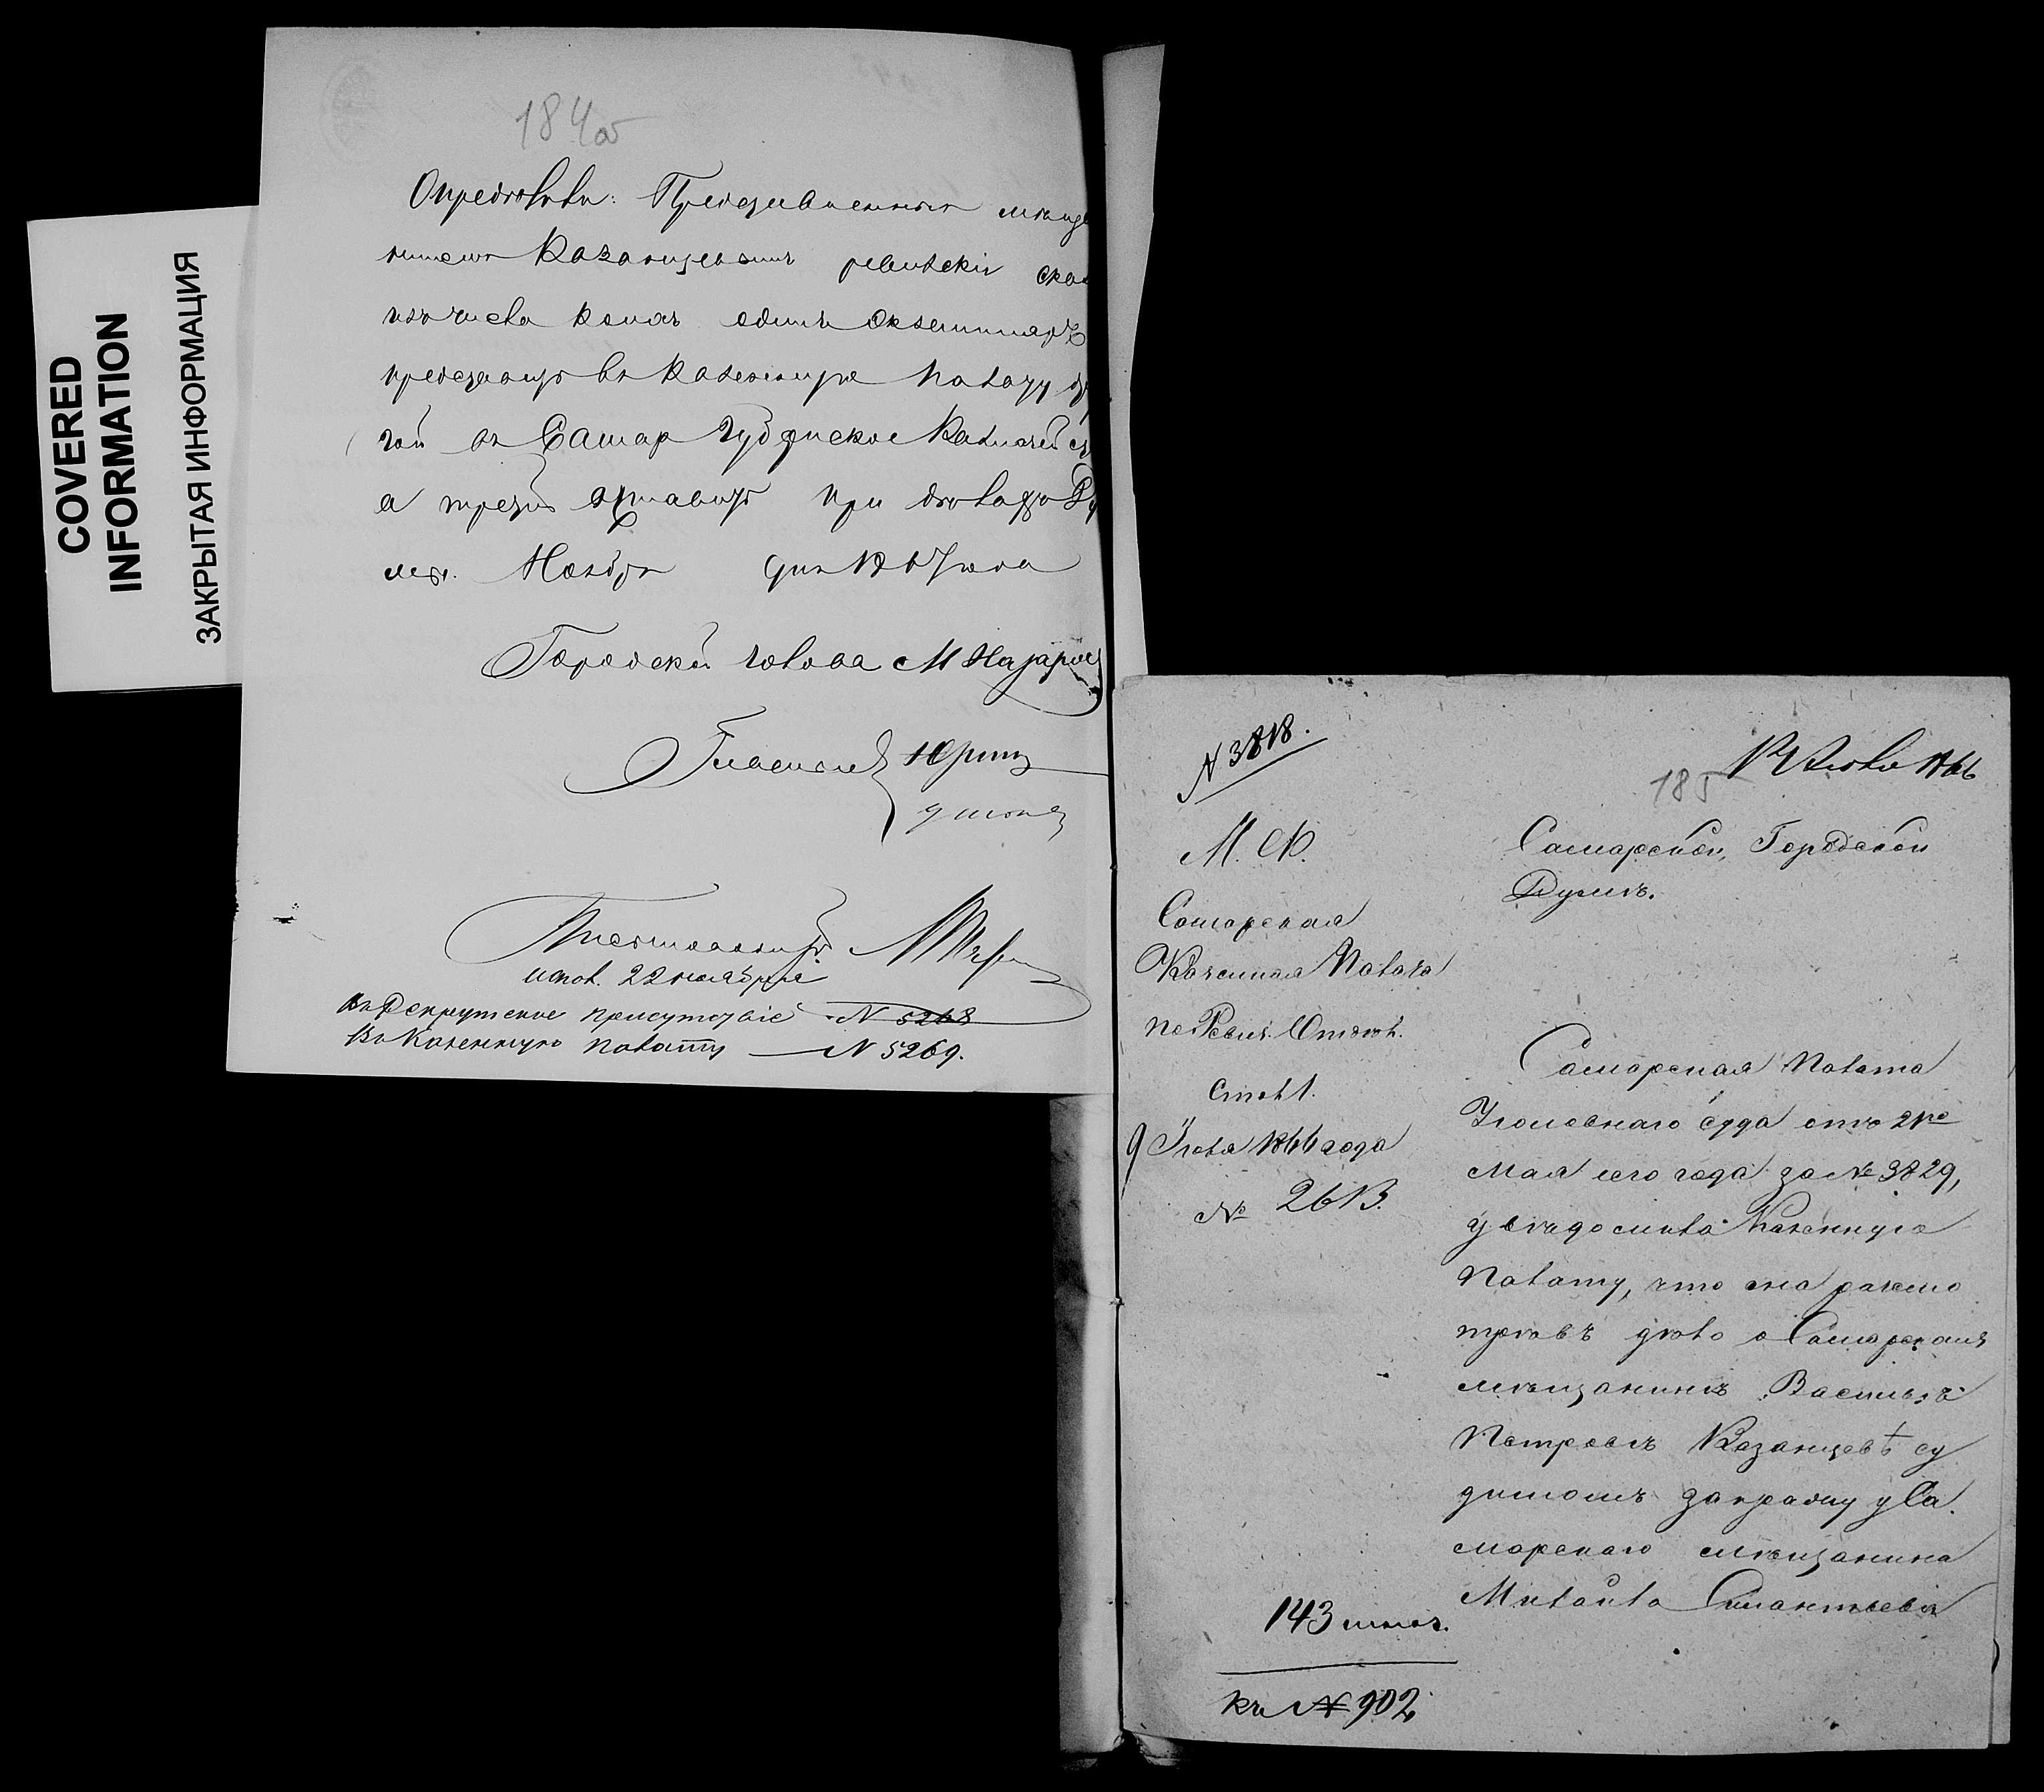 COVERED
INFORMATION
ЗАКРЫТАЯ ИНФОРМАЦИЯ
184об
Определили: Представленныя мѣща
ниномъ Казанцевымъ ревизскія сказ
изъ числа коихъ одинъ экземпляръ
представить въ Казенную Палату др
гой въ Самар Губернское Казначейст
а третій оставить при дѣлахъ Ду
мы. Ноября дня 1867 года
Городской голова М Назаров
Гласные Юринъ
исполн. 22 ноября
въ Рекрутское присутствіе № 5268
Въ Казенную палату № 5269.
№ 3818.
185
12 Іюля 1866
М. Ф.
Самарская
Казенная Палата
по Ревиз. Отдѣл.
Столъ 1.
9 Іюля 1866 года
№ 2613.
143 мѣщ.
къ № 902
Самарской Городской
Думѣ.
Самарская Палата
Уголовнаго Суда отъ 21го
мая сего года за № 3829,
увѣдомила Казенную
Палату, что она разсмо
трѣвъ дѣло о Самарскомъ
мѣщанинѣ Васильѣ
Петровѣ Казанцевѣ су
димомъ за кражу у Са
марскаго мѣщанина
Михаила Силантьева